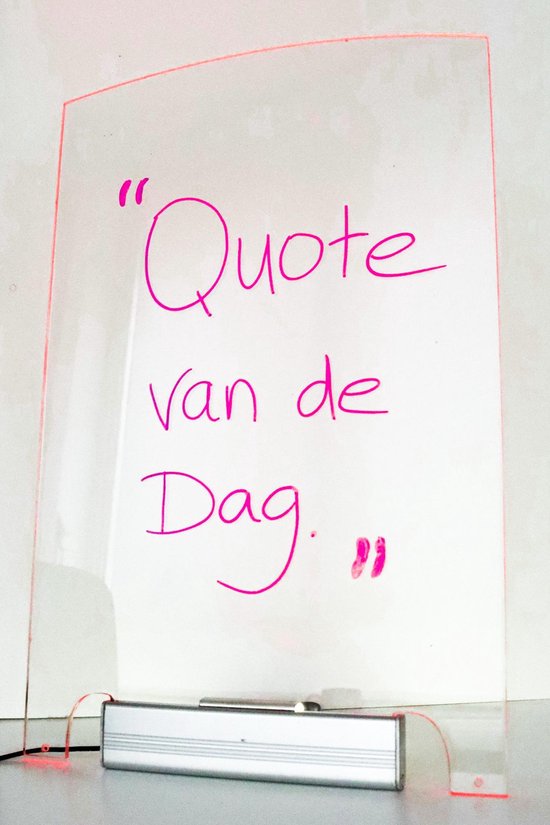 "Quote
van de
Dag."